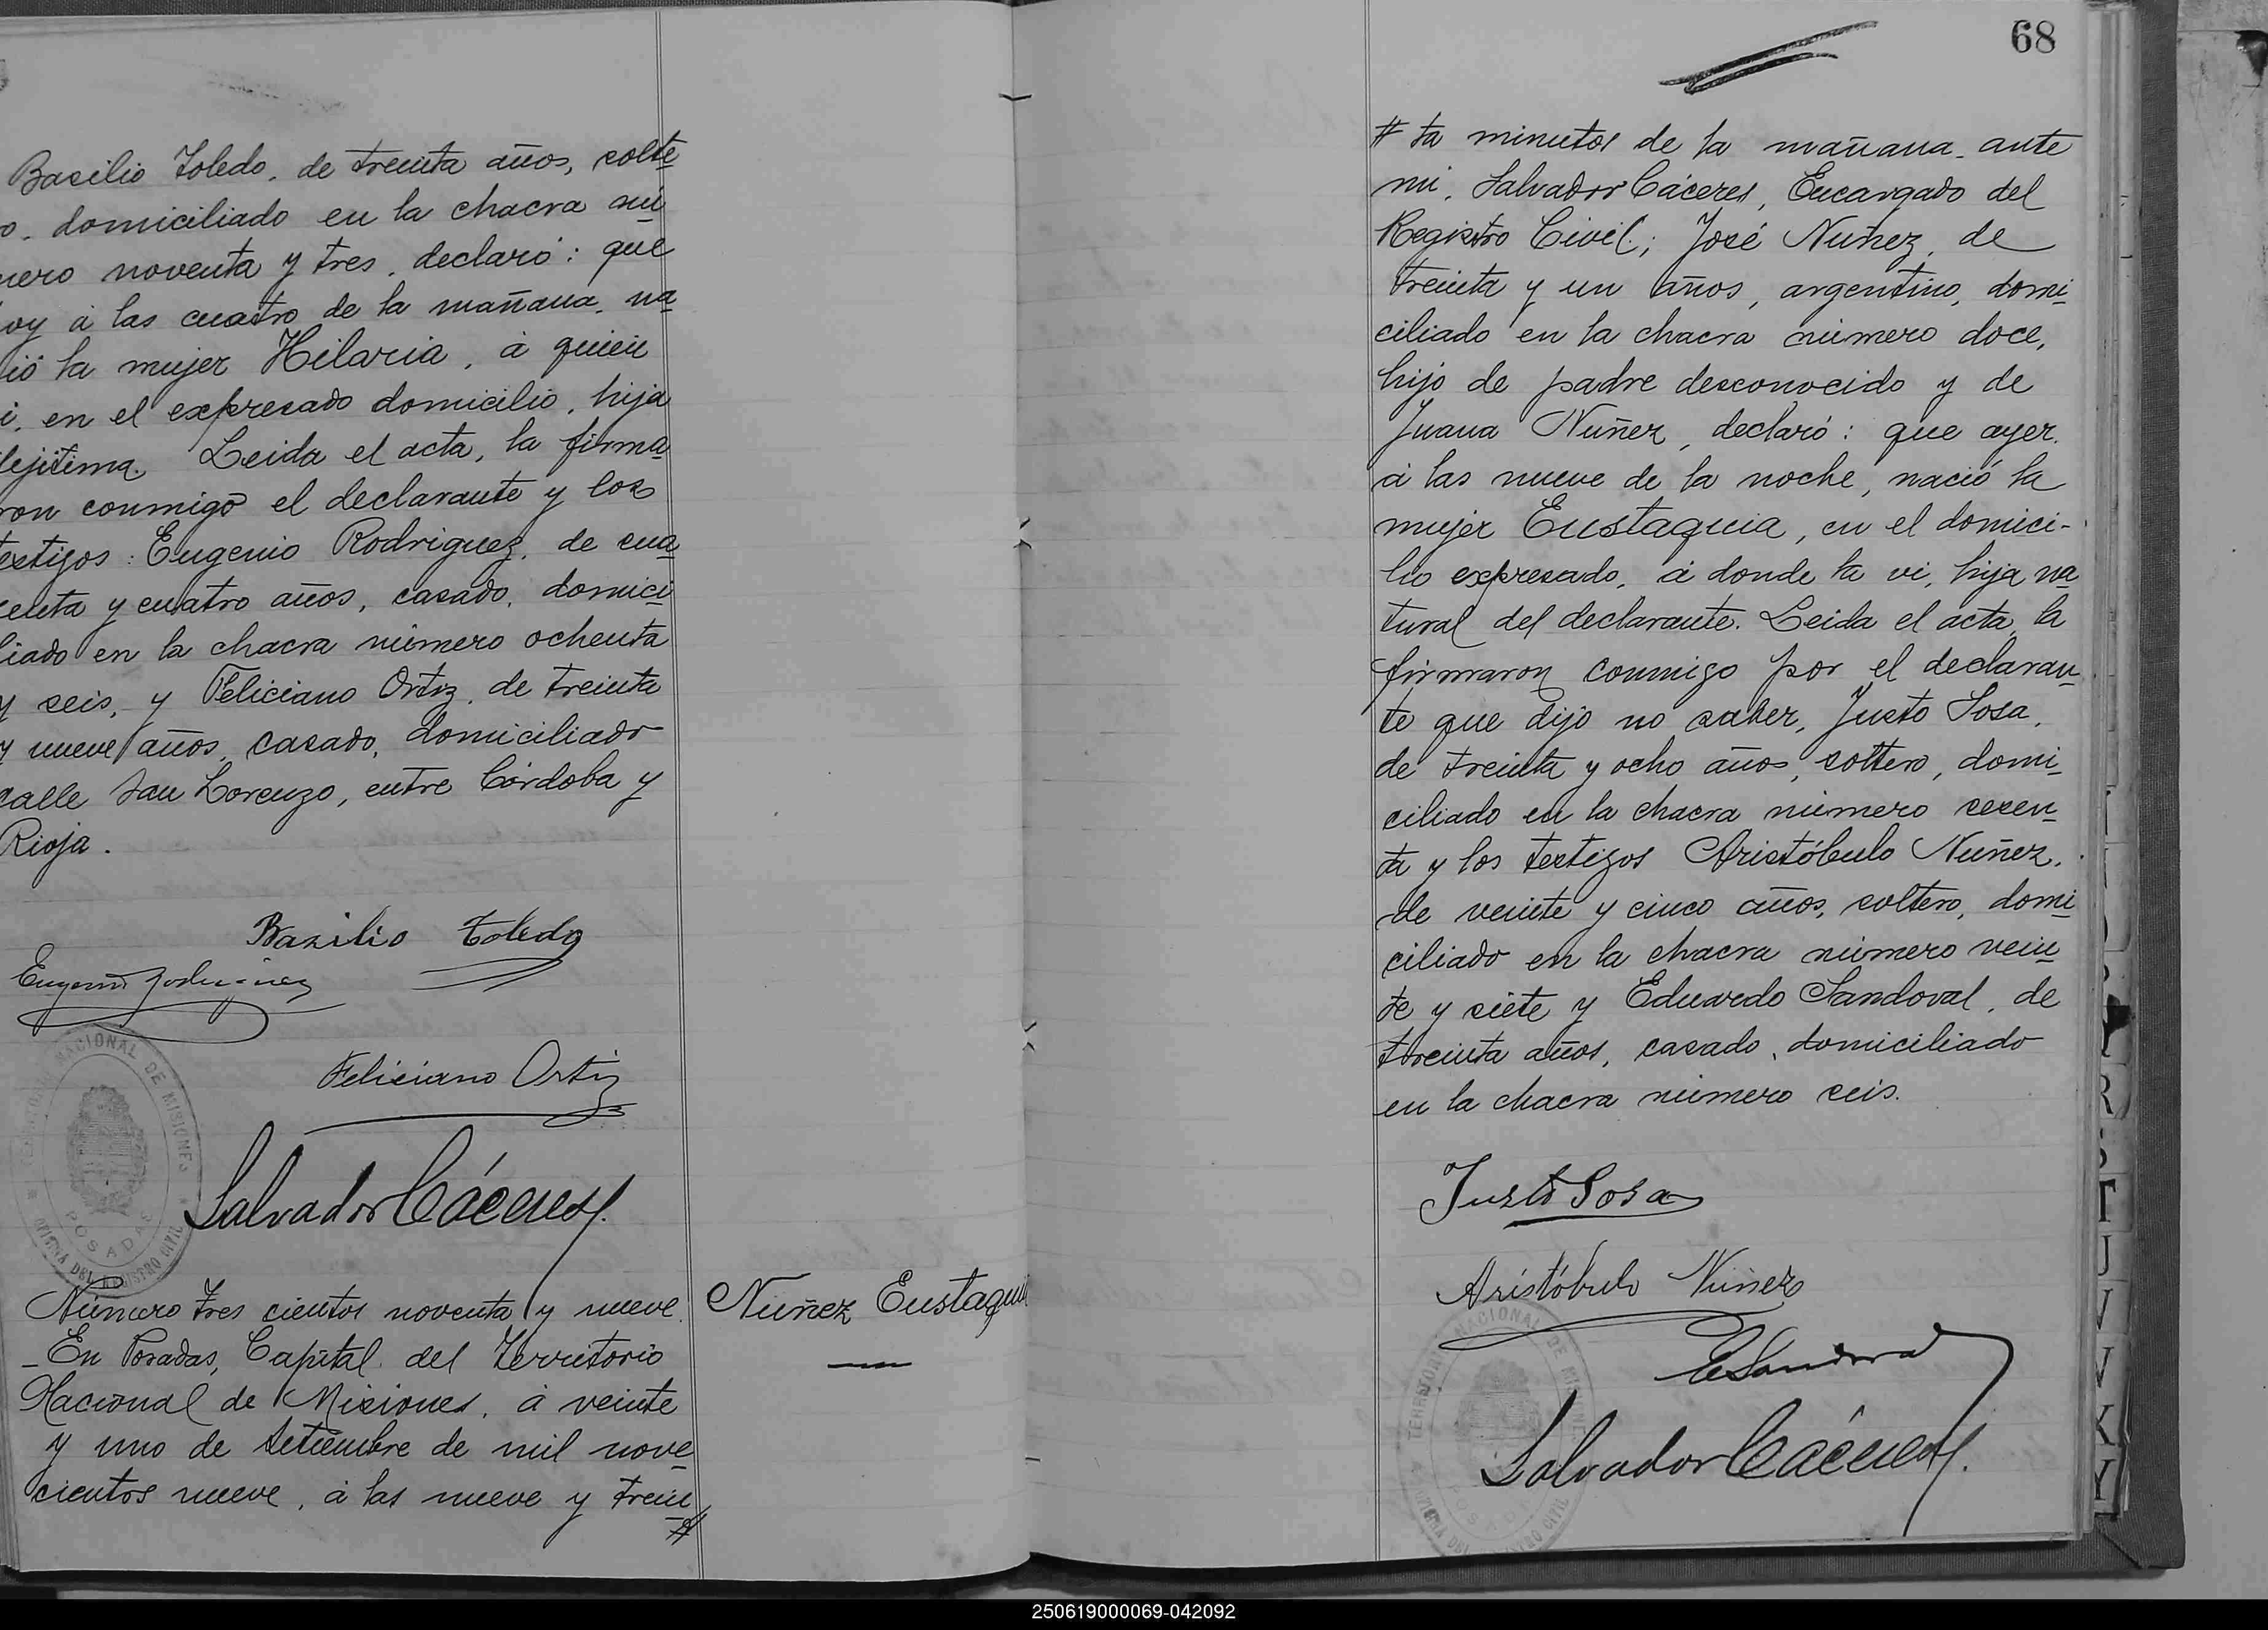 Basilio Toledo, de treinta años, solte
o, domiciliado en la chacra nú
mero noventa y tres, declaró: que
oy á las cuatro de la mañana, na
ió la mujer Hilaria, á quien
i, en el expresado domicilio, hija
lejítima. Leida el acta, la firma
ron conmigo el declarante y los
testigos: Eugenio Rodriguez, de cua
renta y cuatro años, casado, domici
liado en la chacra número ochenta
y seis, y Feliciano Ortiz, de treinta
y nueve años, casado, domiciliado
calle San Lorenzo, entre Córdoba y
Rioja.
Basilio Toledo
Eugenio Rodriguez
Feliciano Ortiz
Salvador Cáceres
TERRITORIO NACIONAL DE MISIONES
POSADAS
OFICINA DEL REGISTRO CIVIL
Número tres cientos noventa y nueve.
Nuñez Eustaquia
-En Posadas, Capital del Territorio
Nacional de Misiones, á veinte
y uno de Setiembre de mil nove
cientos nueve, á las nueve y trein
#
68
# ta minutos de la mañana, ante
mi, Salvador Cáceres, Encargado del
Registro Civil; José Nuñez, de
treinta y un años, argentino, domi
ciliado en la chacra número doce,
hijo de padre desconocido y de
Juana Nuñez, declaró: que ayer,
á las nueve de la noche, nació la
mujer Eustaquia, en el domici-
lio expresado, á donde la vi, hija na
tural del declarante. Leida el acta, la
firmaron conmigo por el declaran
te que dijo no saber, Justo Sosa,
de treinta y ocho años, soltero, domi
ciliado en la chacra número sesen
ta y los testigos Aristóbulo Nuñez,
de veinte y cinco años, soltero, domi
ciliado en la chacra número vein
te y siete y Eduardo Sandoval, de
treinta años, casado, domiciliado
en la chacra número seis.
Justo Sosa
Aristóbulo Nuñez
E Sandoval
Salvador Cáceres
TERRITORIO NACIONAL DE MISIONES
POSADAS
OFICINA DEL REGISTRO CIVIL
R
S
T
U
V
V
K
Y
250619000069-042092